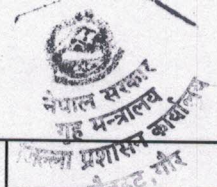 नेपाल सरकार
गृह मन्त्रालय
जिल्ला प्रशासन कार्यालय
गौर